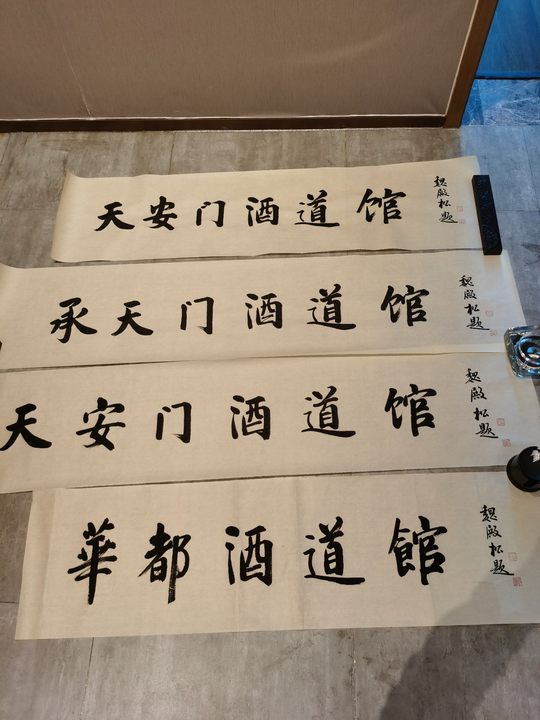 天安门酒道馆
魏殿松题
承天门酒道馆
魏殿松题
天安门酒道馆
魏殿松题
華都酒道館
魏殿松题